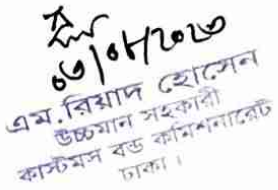 ০৩/০৮/২০২৩
এম. রিয়াদ হোসেন
উচ্চমান সহকারী
কাস্টমস বন্ড কমিশনারেট
ঢাকা।